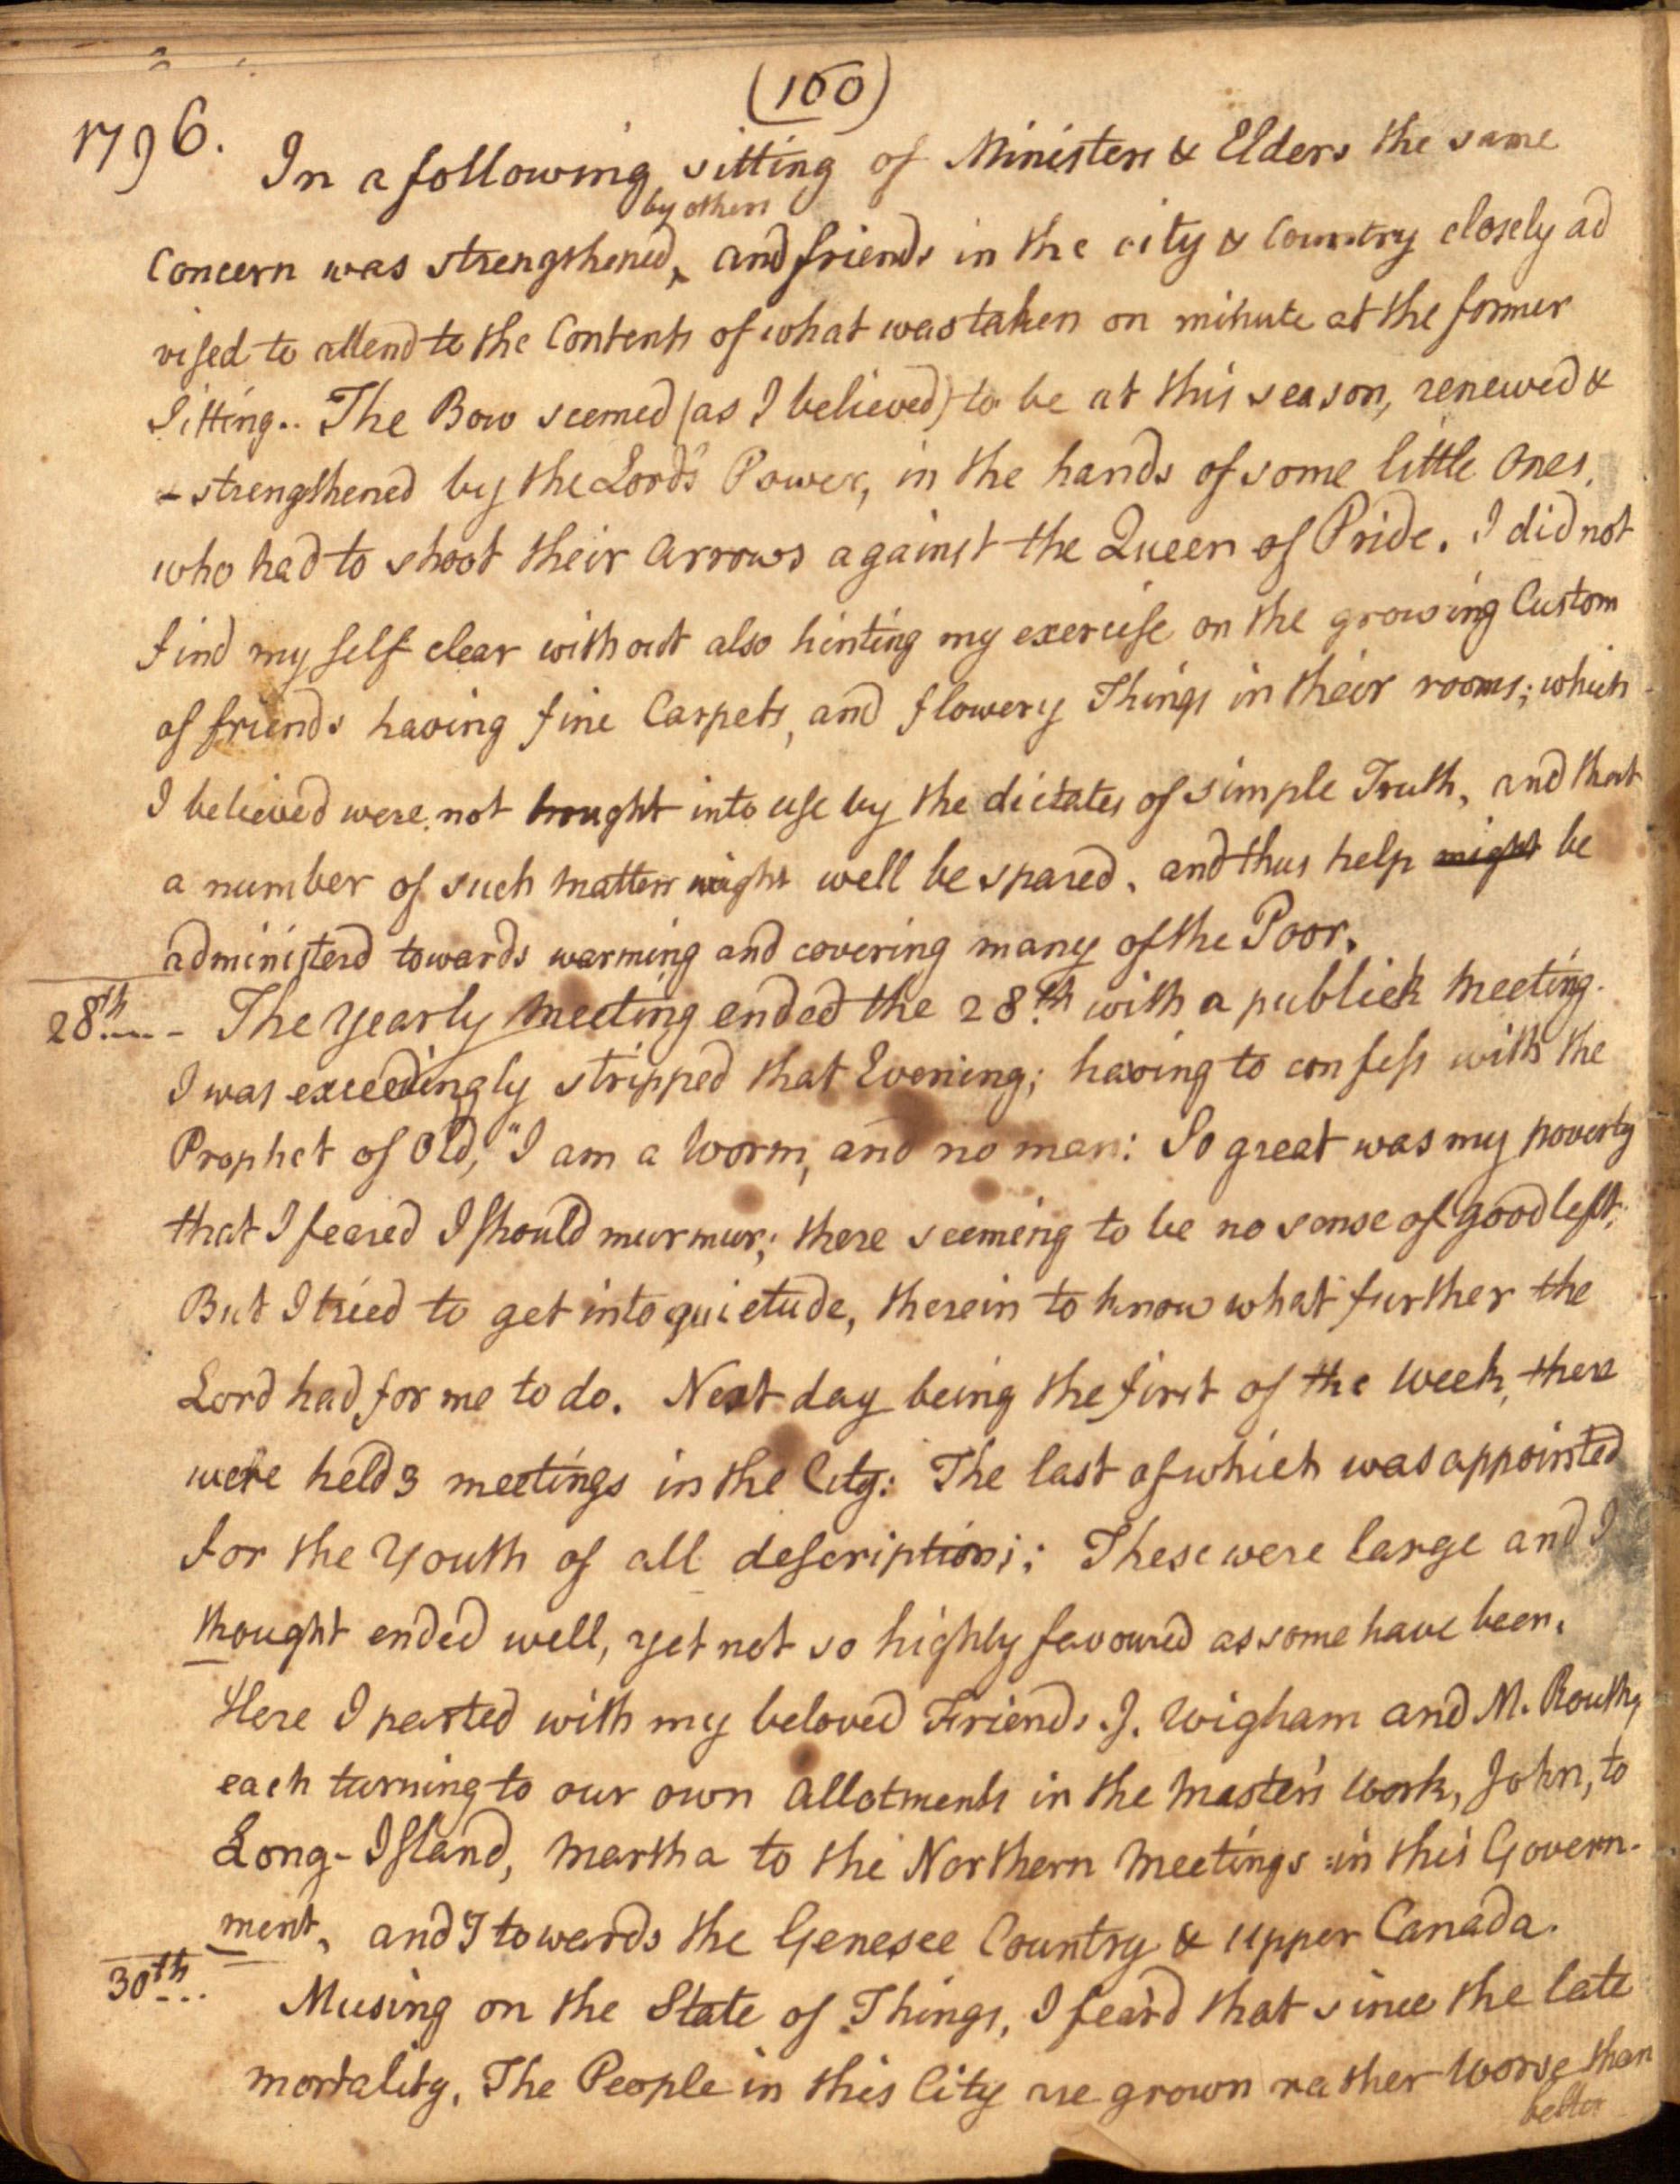 (100)
1796. In a following sitting of Ministers & Elders the same
by others
Concern was strengthened, and friends in the city & Country closely ad
vised to attend to the Contents of what was taken on minute at the former
Sitting.. The Bow seemed (as I believed) to be at this season, renewed &
- strengthened by the Lord's Power, in the hands of some little Ones,
who had to shoot their arrows against the Queen of Pride. I did not
find my self clear without also hinting my exercise on the growing Custom
of friends having fine Carpets, and flowery Things in their rooms; which
I believed were not brought into use by the dictates of simple Truth, and that
a number of such matters might well be spared, and thus help might be
administerd towards warming and covering many of the Poor.
28th - The Yearly Meeting ended the 28th with a publick Meeting.
I was exceedingly stripped that Evening; having to confess with the
Prophet of Old, "I am a Worm, and no man: So great was my poverty
that I feared I should murmur; there seeming to be no sense of good left;
But I tried to get into quietude, therein to know what further the
Lord had for me to do. Next day being the first of the Week, there
were held 3 meetings in the City: The last of which was appointed
for the Youth of all descriptions; These were large and I
thought ended well, yet not so highly favoured as some have been.
Here I parted with my beloved Friends J. Wigham and M. Routh,
each turning to our own allotments in the Master's Work, John, to
Long-Island, Martha to the Northern Meetings in this Govern-
ment, and I towards the Genesee Country & Upper Canada.
30th... Musing on the State of Things, I fear'd that since the late
mortality, The People in this City are grown rather Worse than
better